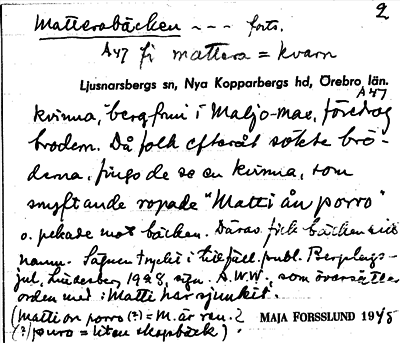 2
Matterabäcken --- forts.
A47 fi mattera = kvarn
Ljusnarsbergs sn, Nya Kopparbergs hd, Örebro län.
A47
kvinna, bergfrun i Maljo-mae, föredrog
brodern. Då folk efteråt sökte brö-
derna, fingo de se en kvinna, som
snyftande ropade "Matti ån porro"
o. pekade mot bäcken. Därav fick bäcken sitt
namn. Sägnen tryckt i tillfäll. publ. Bergslags-
jul, Lindesberg 1928, sign. A.W.W., som översätter
orden med: Matti har sjunkit.
(Matti on porro (?) = M. är ren. ?
(?) puro = liten skogsbäck).
MAJA FORSSLUND 1945